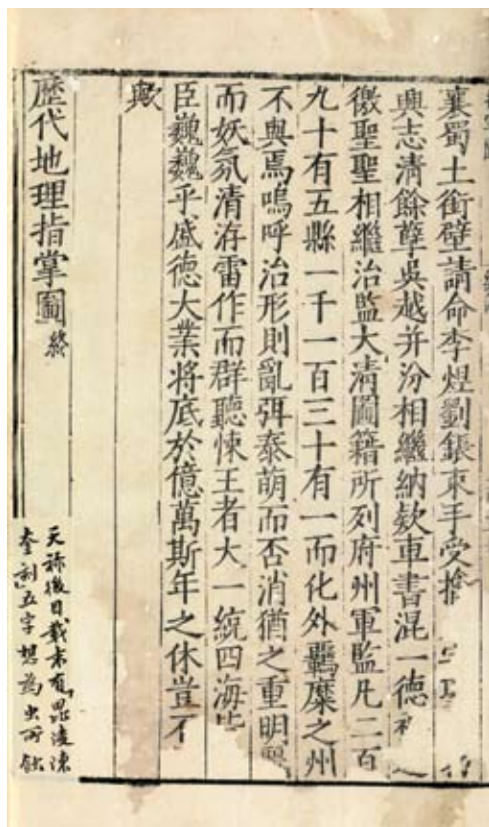 襄蜀土銜璧請命李煜劉鋹束手受擒
興志淸餘孽吳越并汾相繼納欵車書混一德
徽聖聖相繼治監大淸圖籍所列府州軍監凡二百
九十有五縣一千一百三十有一而化外羈縻之州
不與焉嗚呼治形則亂弭泰萌而否消猶之重明
而妖氛淸洊雷作而群聽悚王者大一統四海
臣巍巍乎盛德大業将底於億萬斯年之休豈不
歟
歷代地理指掌圖 終
天祿後目載末有毘陵陳
奎刻五字想為出所